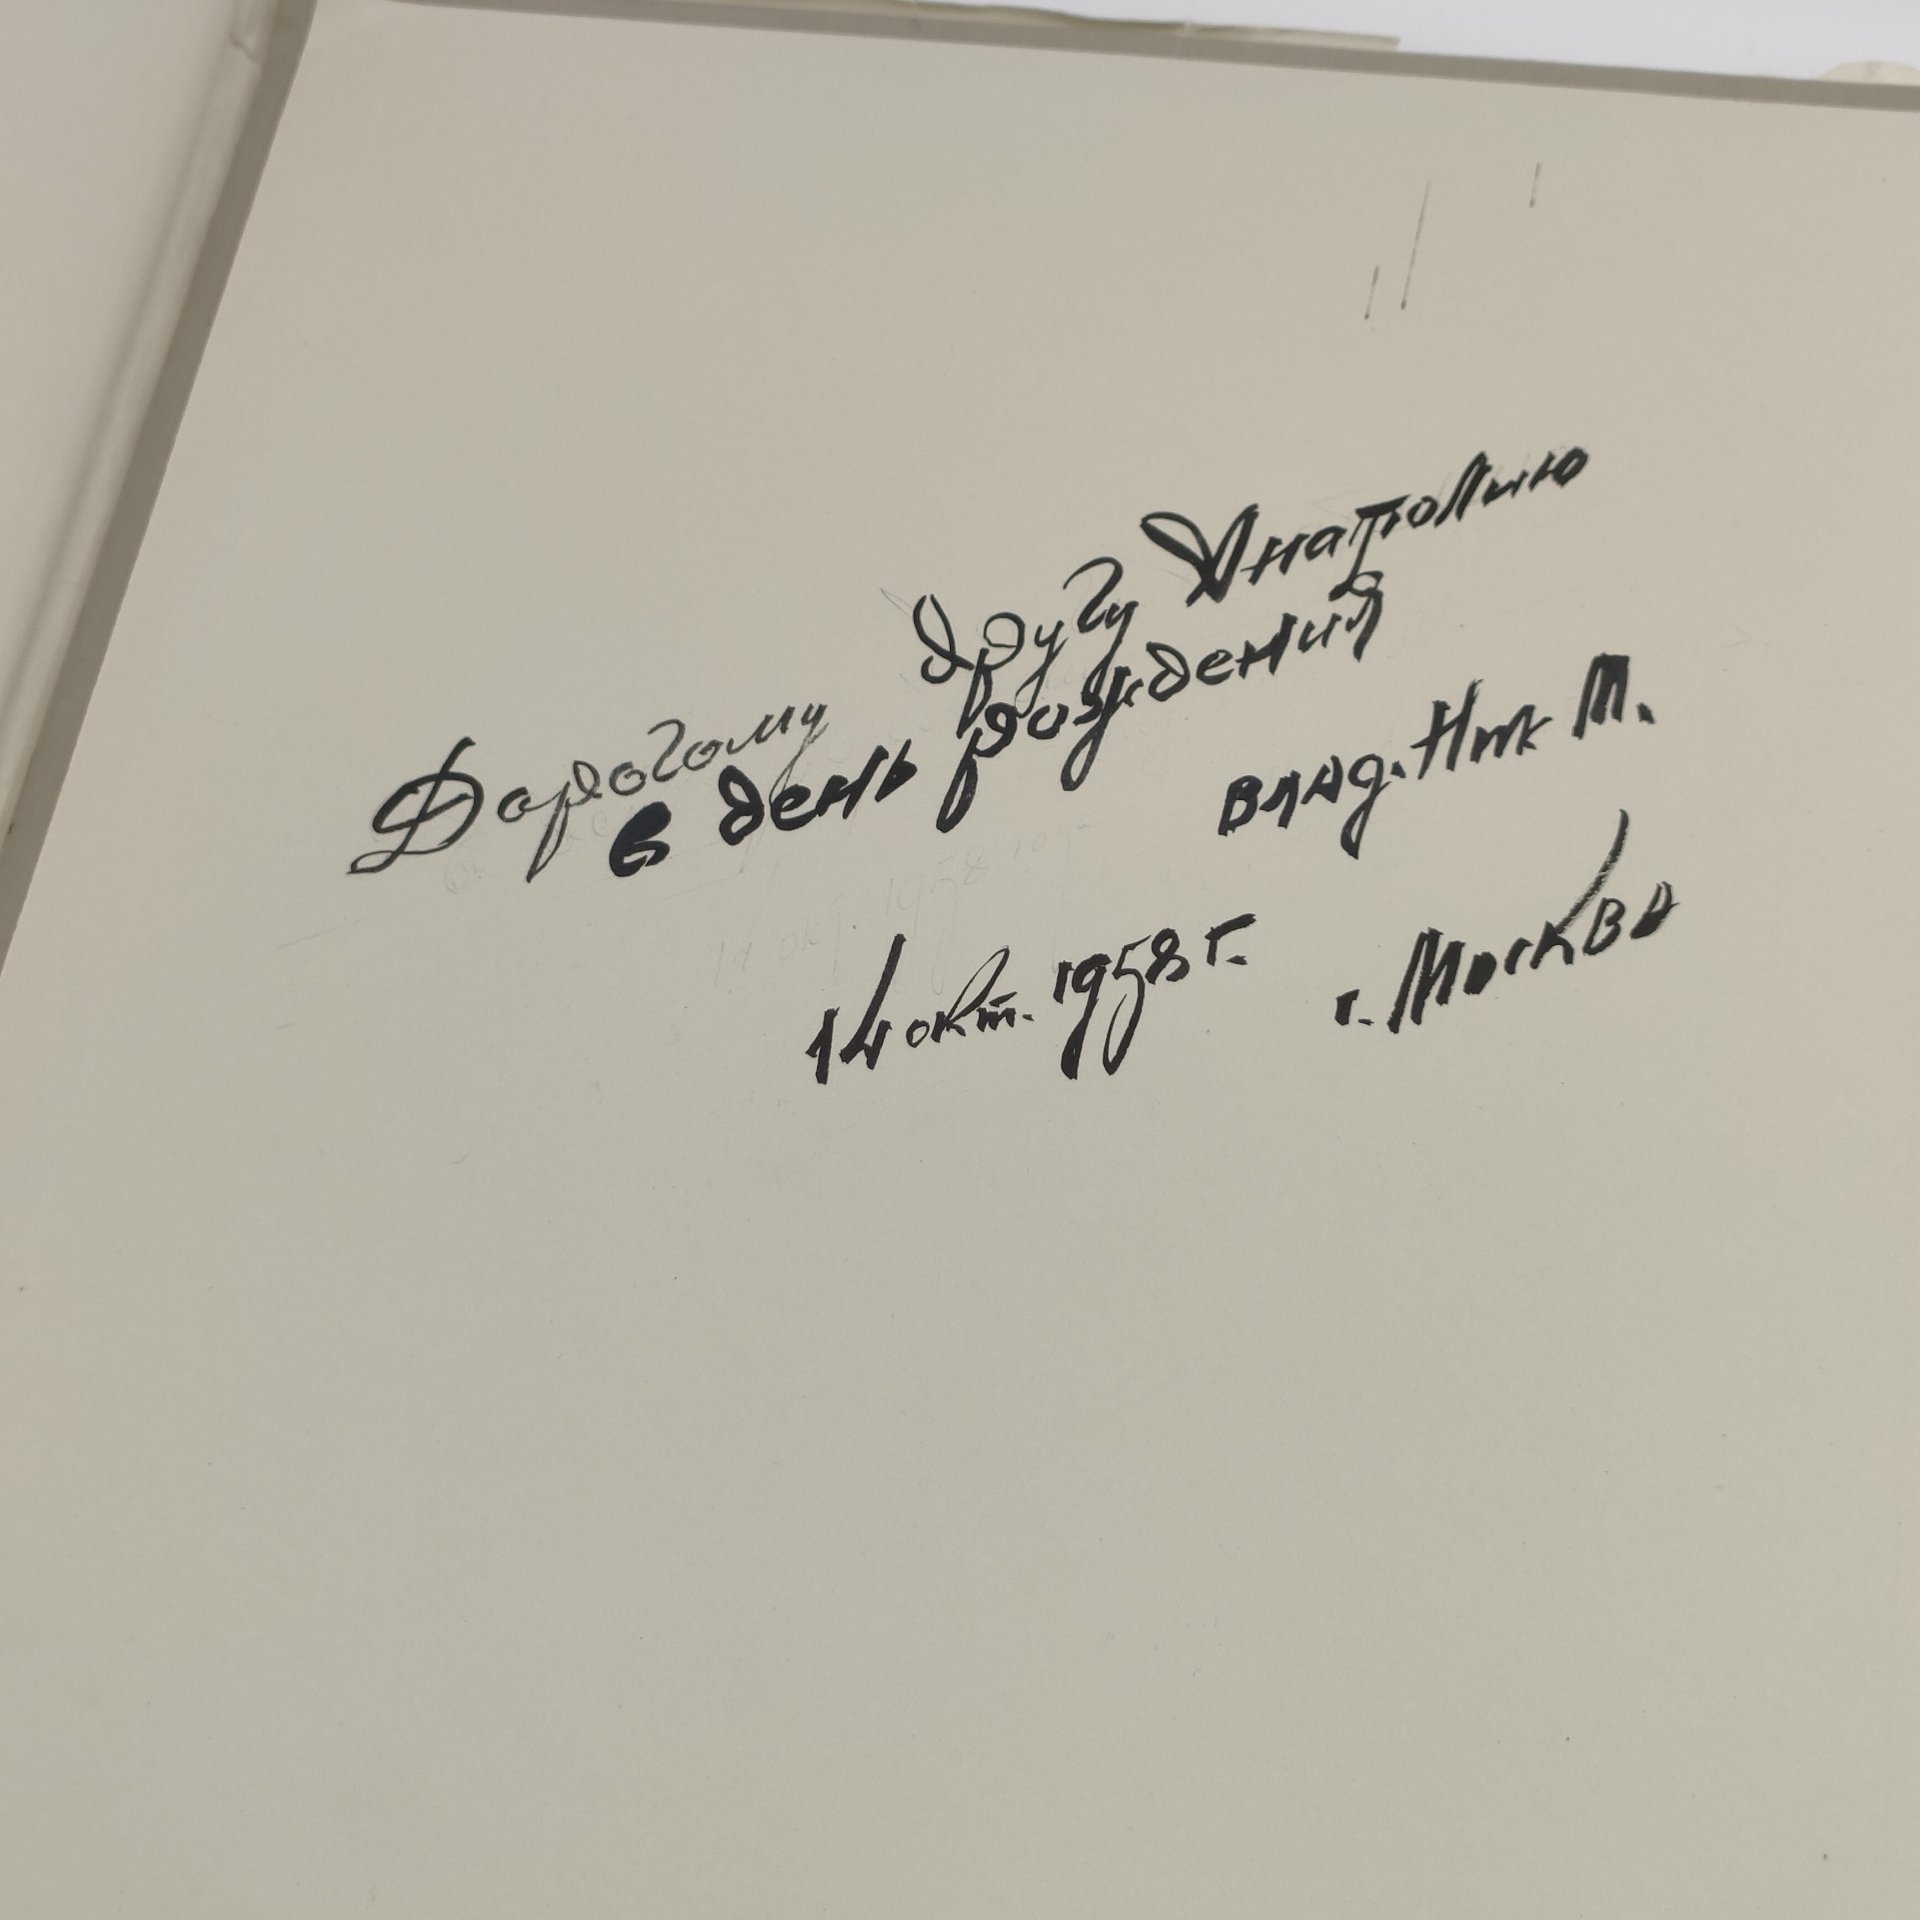 Дорогому другу Анатолию
в день рождения
Влад. Ник М.
14 окт. 1958 г.
г. Москва